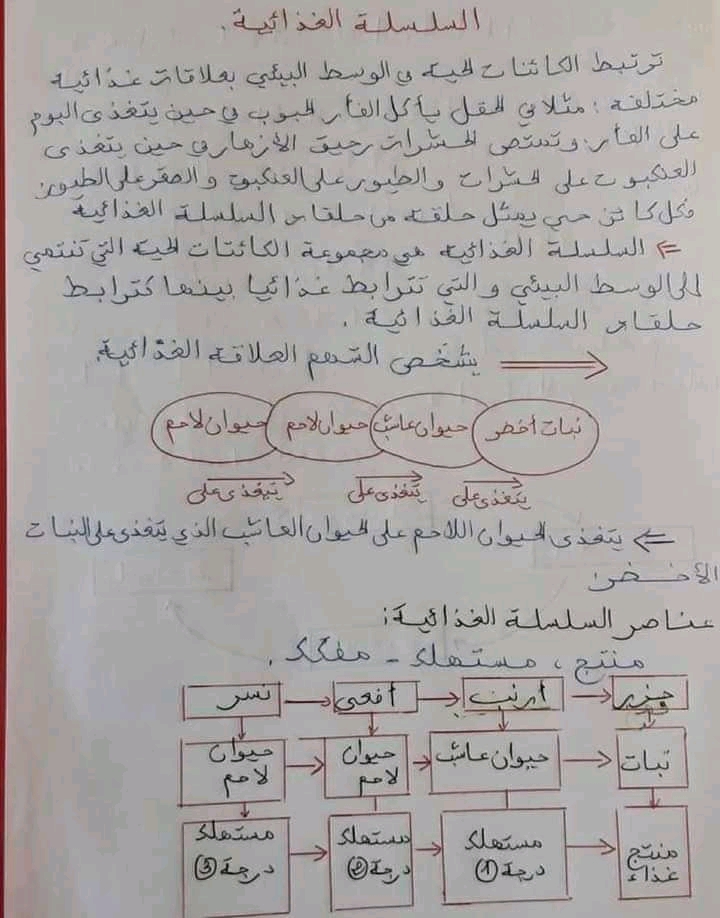 السلسلة الغذائية.
ترتبط الكائنات الحية في الوسط البيئي بعلاقات غذائية
مختلفة : مثلا في الحقل يأكل الفأر الحبوب في حين يتغذى البوم
على الفأر. وتمتص الحشرات رحيق الأزهار في حين يتغذى
العنكبوت على الحشرات والطيور على العنكبوت والصقر على الطيور
فكل كائن حي يمثل حلقة من حلقات السلسلة الغذائية
⇐ السلسلة الغذائية هي مجموعة الكائنات الحية التي تنتمي
للى الوسط البيئي والتي تترابط غذائيا بينها كترابط
حلقات السلسلة الغذائية .
يشخص السهم العلاقة الغذائية.
نبات أخضر حيوان عاشب حيوان لاحم حيوان لاحم
يتغذى على يتغذى على يتغذى على
⇐ يتغذى الحيوان اللاحم على الحيوان العاشب الذي يتغذى على النبات
الأخضر.
عناصر السلسلة الغذائية:
منتج ، مستهلك - مفكك .
جزر → أرنب → أفعى → نسر
نبات حيوان عاشب حيوان لاحم حيوان لاحم
منتج غذاءه مستهلك درجة ① مستهلك درجة ② مستهلك درجة ③